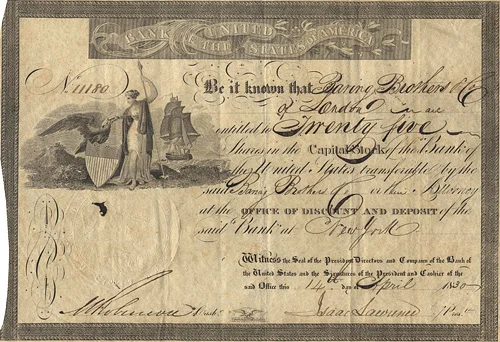 BANK OF THE UNITED STATES OF AMERICA
No. 11180
Be it known that Baring Brothers & Co
of London are
entitled to Twenty five
Shares in the Capital Stock of the Bank of
the United States transferable by the
said Baring Brothers & Co or their Attorney
at the OFFICE OF DISCOUNT AND DEPOSIT of the
said Bank at New York
Witness the Seal of the President Directors and Company of the Bank of
the United States and the Signatures of the President and Cashier of the
said Office this 14th day of April 1830
M Robinson Cash. Isaac Lawrence Prest